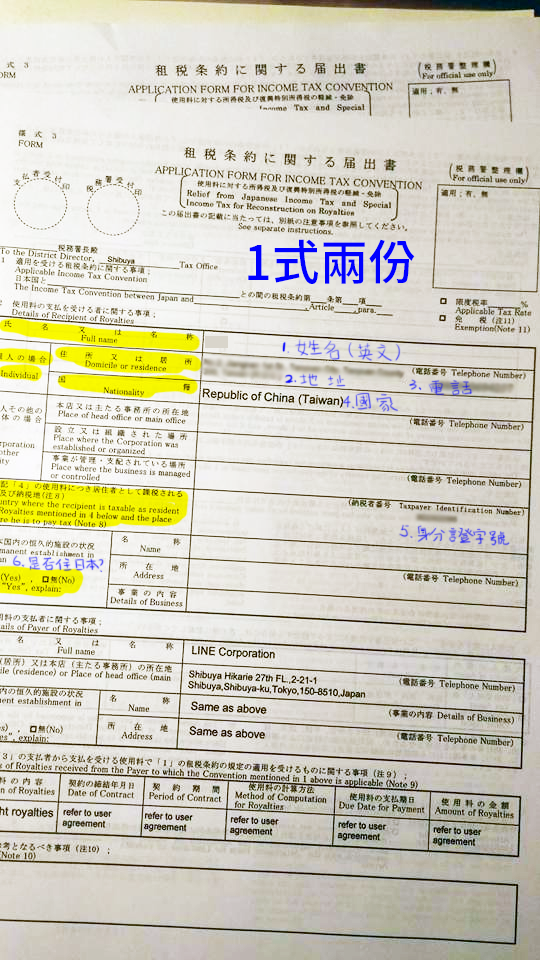 式 3
FORM
租税条約に関する届出書
(税務署整理欄)
(For official use only)
APPLICATION FORM FOR INCOME TAX CONVENTION
適用;有、無
使用料に対する所得税及び復興特別所得税の軽減・免除
Income Tax and Special
様式 3
FORM
租税条約に関する届出書
(税務署整理欄)
(For official use only)
APPLICATION FORM FOR INCOME TAX CONVENTION
適用;有、無
支払者受付印
税務署受付印
使用料に対する所得税及び復興特別所得税の軽減・免除
Relief from Japanese Income Tax and Special
Income Tax for Reconstruction on Royalties
この届出書の記載に当たっては、別紙の注意事項を参照してください。
See separate instructions.
1式兩份
税務署長殿
To the District Director, Shibuya Tax Office
1 適用を受ける租税条約に関する事項;
Applicable Income Tax Convention
日本国と との間の租税条約第 条第 項
The Income Tax Convention between Japan and , Article , para.
□ 限度税率 %
Applicable Tax Rate
□ 免税 (注11)
Exemption(Note 11)
使用料の支払を受ける者に関する事項;
Details of Recipient of Royalties
氏名又は名称
Full name
1.姓名(英文)
個人の場合
Individual
住所又は居所
Domicile or residence
(電話番号 Telephone Number)
2.地址
3.電話
国籍
Nationality
Republic of China (Taiwan)
4.國家
本店又は主たる事務所の所在地
Place of head office or main office
(電話番号 Telephone Number)
設立又は組織された場所
Place where the Corporation was
established or organized
事業が管理・支配されている場所
Place where the business is managed
or controlled
(電話番号 Telephone Number)
記「4」の使用料につき居住者として課税される
及び納税地(注8)
untry where the recipient is taxable as resident
Royalties mentioned in 4 below and the place
re he is to pay tax (Note 8)
(納税者番号 Taxpayer Identification Number)
5.身分證字號
本国内の恒久的施設の状況
manent establishment in
an
6.是否住日本?
(Yes) , □無(No)
"Yes", explain:
名称
Name
所在地
Address
(電話番号 Telephone Number)
事業の内容
Details of Business
用料の支払者に関する事項;
ails of Payer of Royalties
氏名又は名称
Full name
LINE Corporation
(居所)又は本店(主たる事務所)の所在地
ile (residence) or Place of head office (main
Shibuya Hikarie 27th FL.,2-21-1
Shibuya,Shibuya-ku,Tokyo,150-8510,Japan
(電話番号 Telephone Number)
内の恒久的施設の状況
nent establishment in
名称
Name
Same as above
(事業の内容 Details of Business)
es) , □無(No)
es", explain:
所在地
Address
Same as above
(電話番号 Telephone Number)
3」の支払者から支払を受ける使用料で「1」の租税条約の規定の適用を受けるものに関する事項(注9);
s of Royalties received from the Payer to which the Convention mentioned in 1 above is applicable (Note 9)
料の内容
n of Royalties
契約の締結年月日
Date of Contract
契約期間
Period of Contract
使用料の計算方法
Method of Computation
for Royalties
使用料の支払期日
Due Date for Payment
使用料の金額
Amount of Royalties
ht royalties
refer to user
agreement
refer to user
agreement
refer to user
agreement
refer to user
agreement
refer to user
agreement
考となるべき事項(注10);
(Note 10)